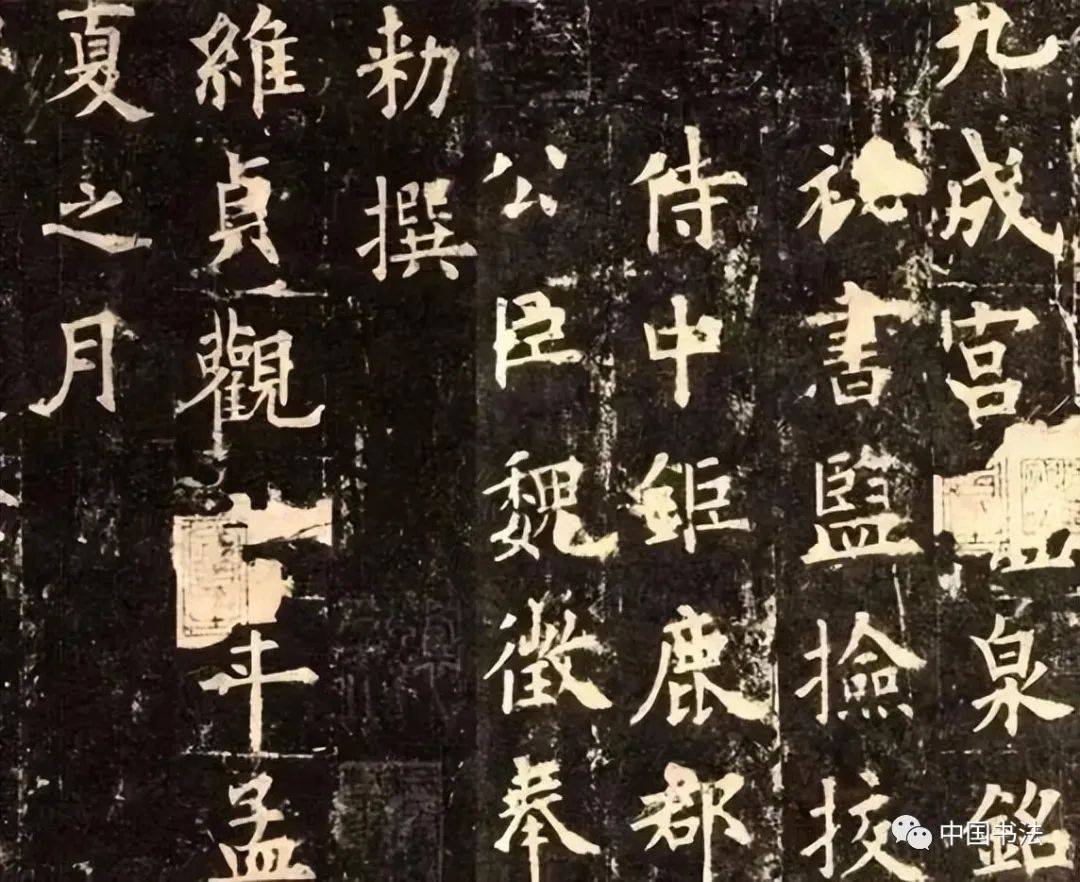 九成宮泉銘
書監撿挍
侍中鉅鹿郡
公臣魏徵奉
勑撰
維貞觀年孟
夏之月
中国书法